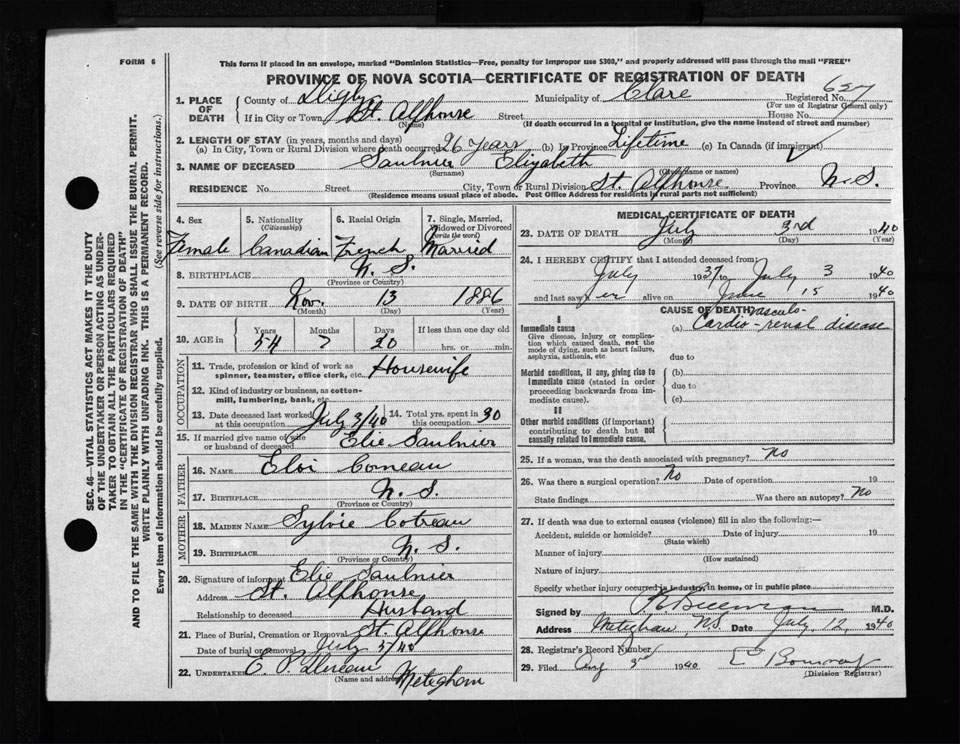 FORM 6
This form if placed in an envelope, marked "Dominion Statistics—Free, penalty for improper use $300," and properly addressed will pass through the mail "FREE"
PROVINCE OF NOVA SCOTIA—CERTIFICATE OF REGISTRATION OF DEATH
1. PLACE OF DEATH County of Digby Municipality of Clare Registered No. 657
(For use of Registrar General only)
If in City or Town St. Alphonse Street House No.
(Name) (If death occurred in a hospital or institution, give the name instead of street and number)
2. LENGTH OF STAY (in years, months and days)
(a) In City, Town or Rural Division where death occurred 26 years (b) In Province Lifetime (c) In Canada (if immigrant)
3. NAME OF DECEASED Saulnier Elizabeth
(Surname) (Given name or names)
RESIDENCE No. Street City, Town or Rural Division St. Alphonse Province N.S.
(Residence means usual place of abode. Post Office Address for residents in rural parts not sufficient)
4. Sex 5. Nationality (Citizenship) 6. Racial Origin 7. Single, Married, Widowed or Divorced (write the word)
Female Canadian French Married
8. BIRTHPLACE N. S.
(Province or Country)
9. DATE OF BIRTH Nov. 13 1886
(Month) (Day) (Year)
10. AGE in Years Months Days If less than one day old
54 7 20 hrs. or min.
OCCUPATION
11. Trade, profession or kind of work as spinner, teamster, office clerk, etc. Housewife
12. Kind of industry or business, as cotton-mill, lumbering, bank, etc.
13. Date deceased last worked at this occupation July 3/40 14. Total yrs. spent in this occupation 30
15. If married give name of wife or husband of deceased Elie Saulnier
FATHER
16. NAME Eloi Comeau
17. BIRTHPLACE N. S.
(Province or Country)
MOTHER
18. MAIDEN NAME Sylvie Cotreau
19. BIRTHPLACE N. S.
(Province or Country)
20. Signature of informant Elie Saulnier
Address St. Alphonse
Relationship to deceased Husband
21. Place of Burial, Cremation or Removal St. Alphonse
Date of burial or removal July 5/40
22. UNDERTAKER E.
(Name and address) Meteghan
MEDICAL CERTIFICATE OF DEATH
23. DATE OF DEATH July 3rd 1940
(Month) (Day) (Year)
24. I HEREBY CERTIFY that I attended deceased from:
July 1937 to July 3 1940
and last saw her alive on June 15 1940
CAUSE OF DEATH
I
Immediate cause (a) Cardio-vasculo-renal disease
Give disease, injury or complication which caused death, not the mode of dying, such as heart failure, asphyxia, asthenia, etc.
due to
Morbid conditions, if any, giving rise to immediate cause (stated in order proceeding backwards from immediate cause).
(b)
due to
(c)
II
Other morbid conditions (if important) contributing to death but not causally related to immediate cause.
25. If a woman, was the death associated with pregnancy? No
26. Was there a surgical operation? No Date of operation 19
State findings Was there an autopsy? No
27. If death was due to external causes (violence) fill in also the following:—
Accident, suicide or homicide? Date of injury 19
(State which)
Manner of injury
(How sustained)
Nature of injury
Specify whether injury occurred in industry, in home, or in public place
Signed by M.D.
Address Meteghan, N.S. Date July 12, 1940
28. Registrar's Record Number
29. Filed Aug 3rd 1940
(Division Registrar)
SEC. 46—VITAL STATISTICS ACT MAKES IT THE DUTY
OF THE UNDERTAKER OR PERSON ACTING AS UNDER-
TAKER TO OBTAIN ALL THE PARTICULARS REQUIRED
IN THE "CERTIFICATE OF REGISTRATION OF DEATH"
AND TO FILE THE SAME WITH THE DIVISION REGISTRAR WHO SHALL ISSUE THE BURIAL PERMIT.
WRITE PLAINLY WITH UNFADING INK. THIS IS A PERMANENT RECORD.
Every item of information should be carefully supplied. (See reverse side for instructions.)